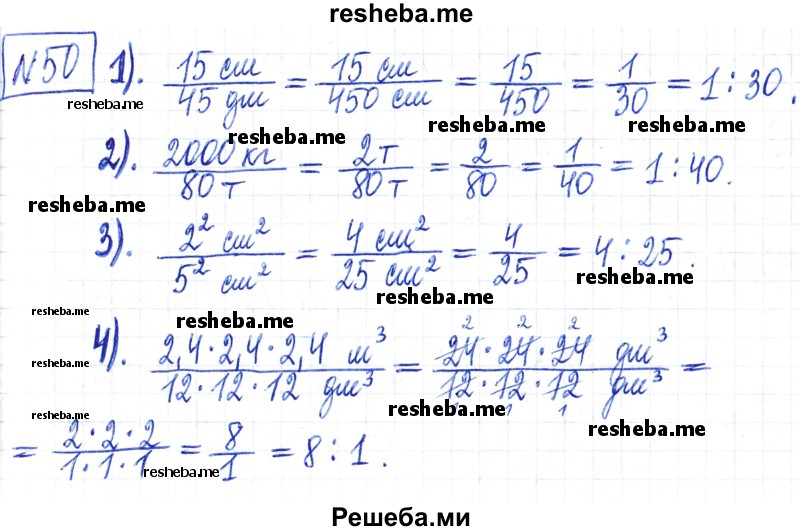 resheba.me
№50 1). 15 см / 45 дм = 15 см / 450 см = 15 / 450 = 1 / 30 = 1 : 30.
resheba.me
resheba.me resheba.me resheba.me
2). 2000 кг / 80 т = 2 т / 80 т = 2 / 80 = 1 / 40 = 1 : 40.
resheba.me
3). 2² см² / 5² см² = 4 см² / 25 см² = 4 / 25 = 4 : 25.
resheba.me
resheba.me
resheba.me resheba.me
4). 2,4 · 2,4 · 2,4 м³ / 12 · 12 · 12 дм³ = 24 2 · 24 2 · 24 2 дм³ / 12 1 · 12 1 · 12 1 дм³ =
resheba.me
resheba.me resheba.me
resheba.me
= 2 · 2 · 2 / 1 · 1 · 1 = 8 / 1 = 8 : 1.
resheba.me
Решеба.ми